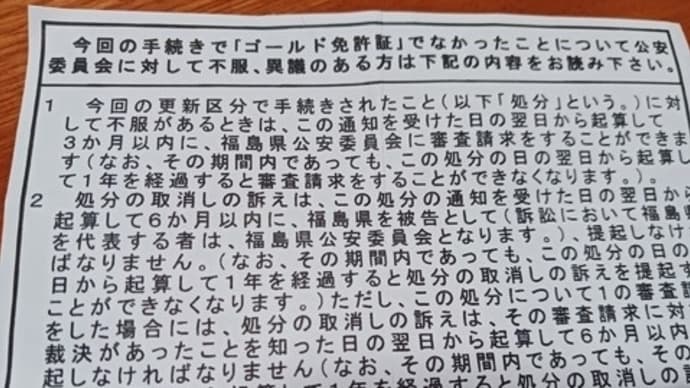 今回の手続きで「ゴールド免許証」でなかったことについて公安
委員会に対して不服、異議のある方は下記の内容をお読み下さい。
1 今回の更新区分で手続きされたこと(以下「処分」という。)に対
して不服があるときは、この通知を受けた日の翌日から起算して
3か月以内に、福島県公安委員会に審査請求をすることができま
す(なお、その期間内であっても、この処分の日の翌日から起算し
て1年を経過すると審査請求をすることができなくなります。)。
2 処分の取消しの訴えは、この処分の通知を受けた日の翌日から
起算して6か月以内に、福島県を被告として(訴訟において福島
を代表する者は、福島県公安委員会となります。)、提起しなけ
ればなりません。(なお、その期間内であっても、この処分の日の
日から起算して1年を経過すると処分の取消しの訴えを提起す
ことができなくなります。)ただし、この処分について1の審査請
をした場合には、処分の取消しの訴えは、その審査請求に対
裁決があったことを知った日の翌日から起算して6か月以内
起しなければなりません(なお、その期間内であっても、
を経過すると処分の取消し